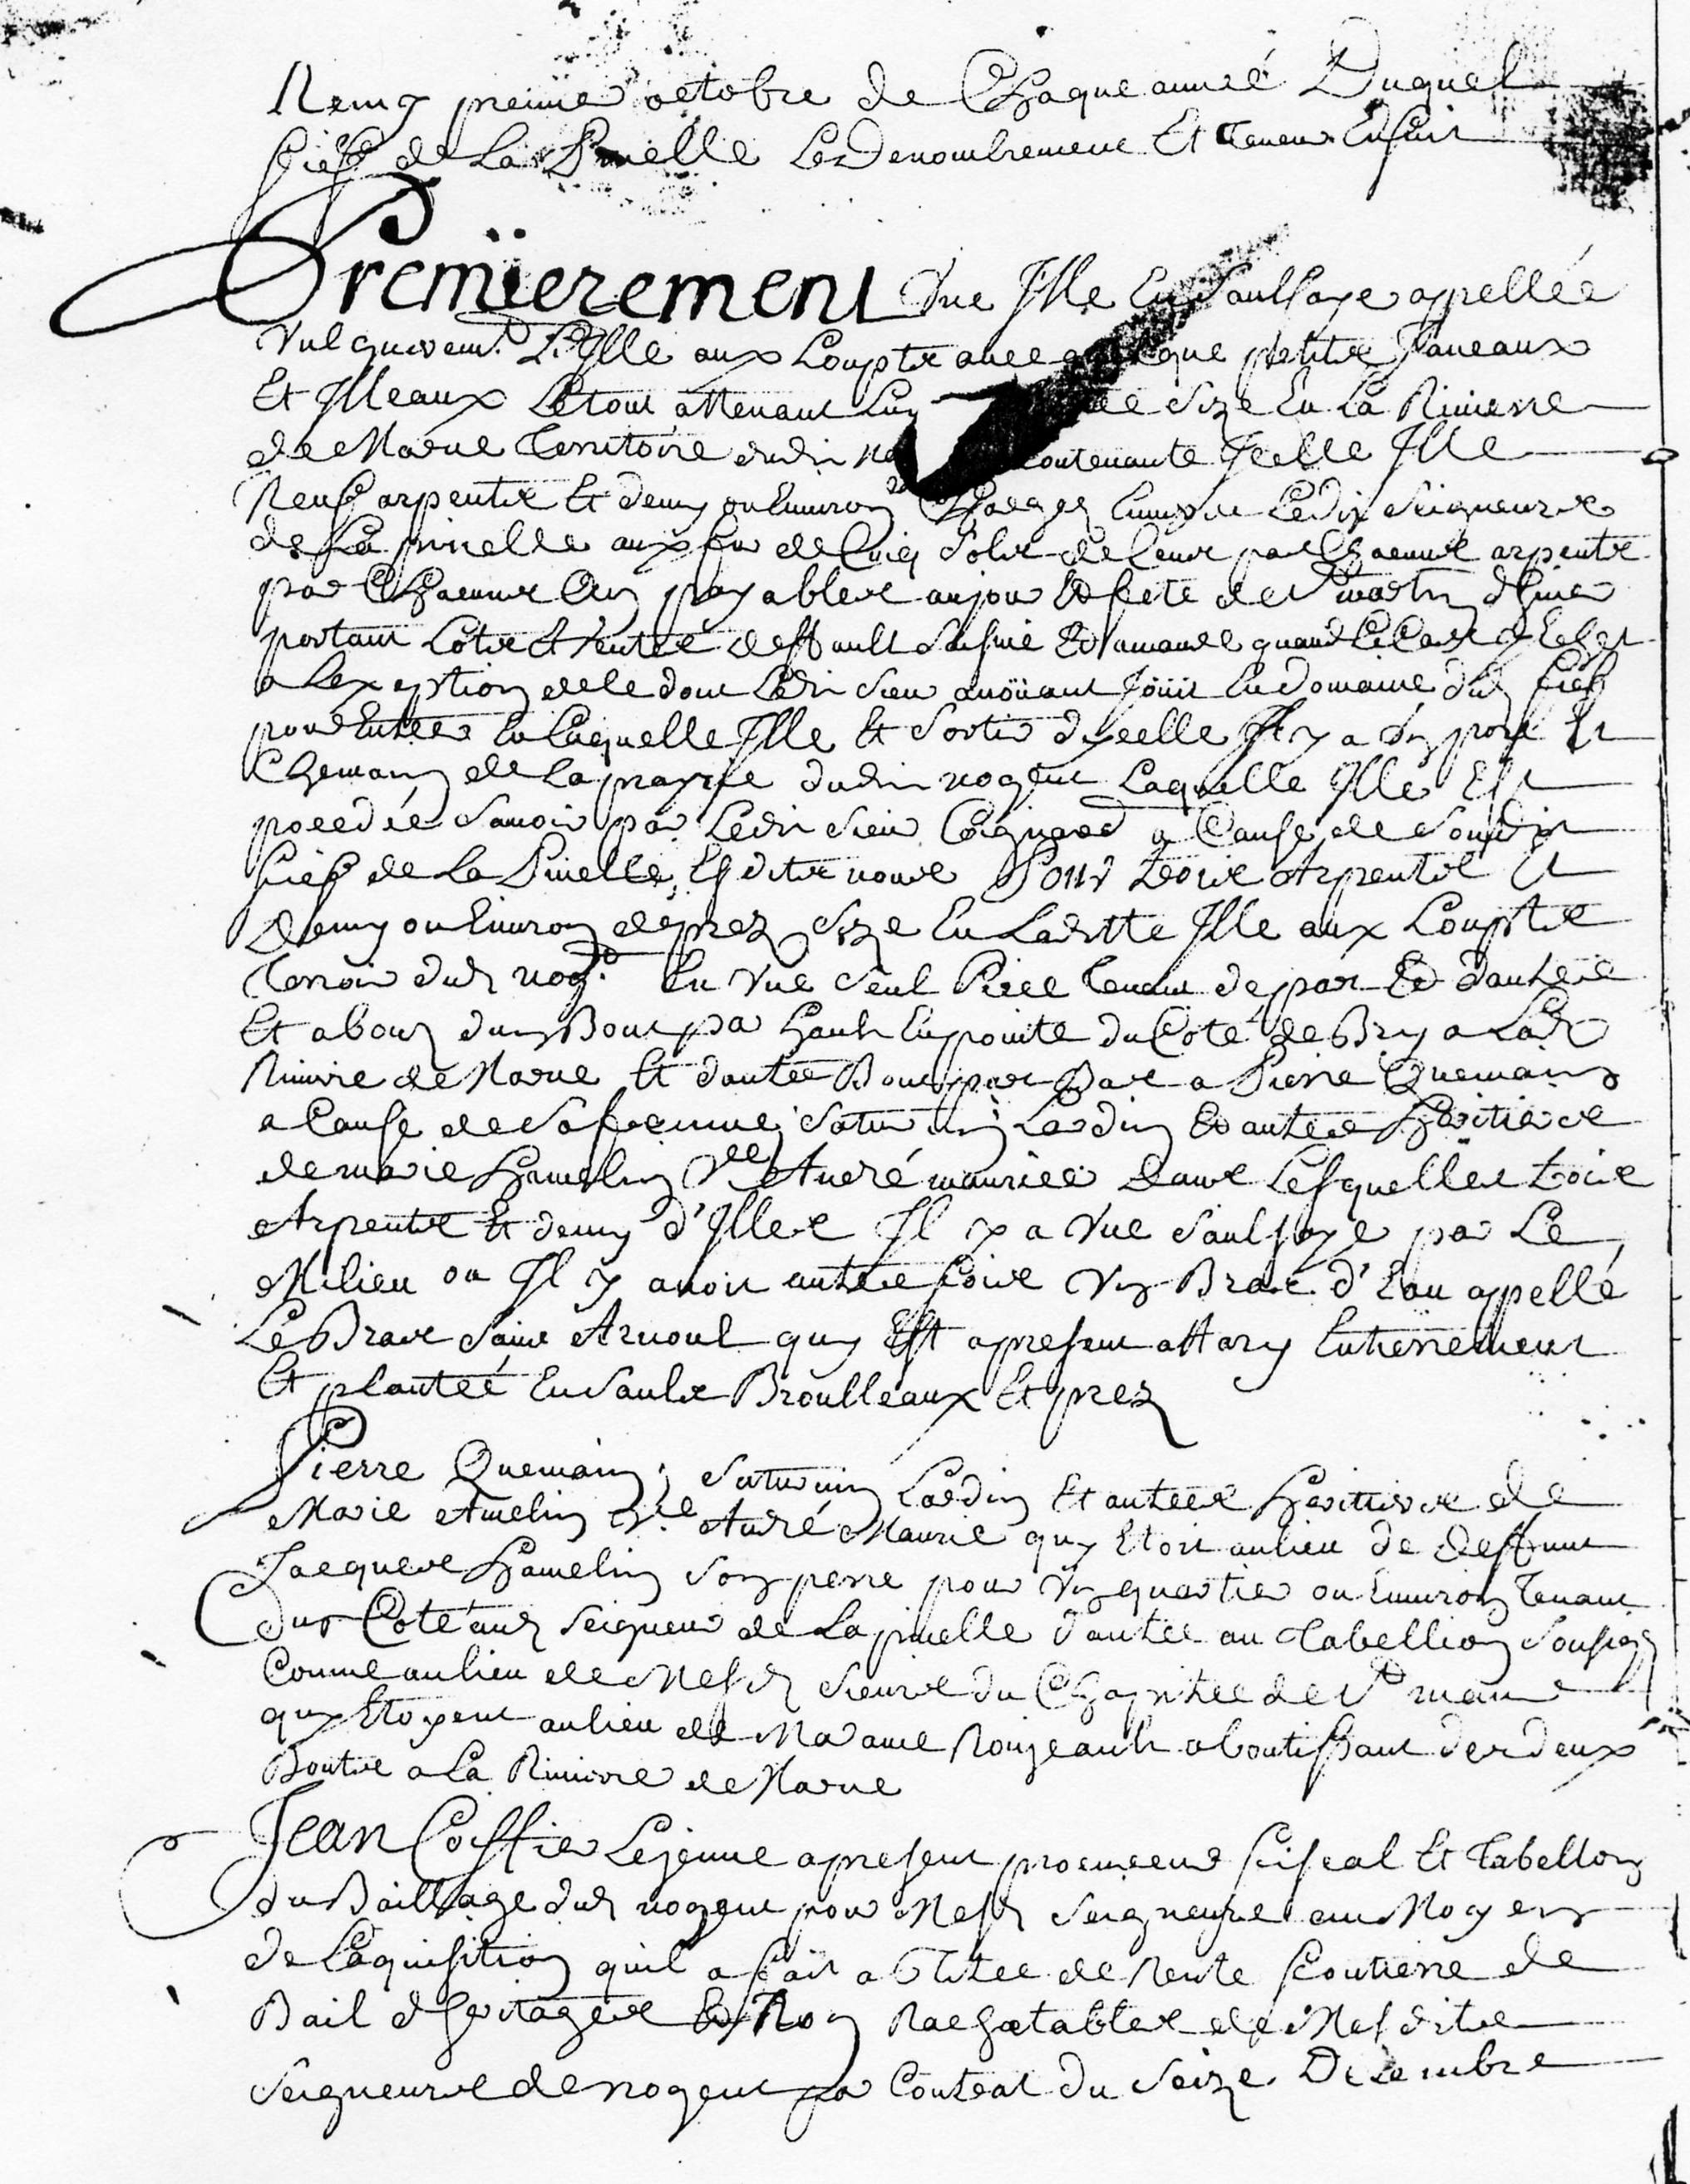 Remy premier octobre de Chaque année Duquel
fief de La Pinelle Les Denombrement Et Teneur Ensuit
Premierement Une Isle En Saulsaye appellée
Vulguerem.t L'Isle aux Loupts avec quelque petits Javeaux
Et Illeaux Le tout attenant Size En La Riviere
de Marne Territoire dudit contenante Icelle Isle
Neuf arpents Et demy ou Environ Chargez Envers Lesdits Seigneurs
de La pinelle aux fur de Cinq Sols de Cens par Chacune arpents
par Chacune An payables au jour Et feste de St martin d'hiver
portant Lots Et Ventes deffault Saisine Et amande quand Le Cas y Echet
a Lexeption de Ce dont Ledit Sieur avoüant Joüit En Domaine dud fief
pour Entrer En Laquelle Isle Et Sortir dycelle Il y a Un port Et
Chemain de La prayrie dudit nogent Laquelle Isle Est
possedée Savoir par Ledit Sieur Coignard a Cause de Sondit
fief de La Pinelle Esdits noms Pour Trois Arpents Et
Demy ou Environ de prez Size En Laditte Isle aux Loupts
Terroir dud nog.t En Une Seul Piece Tenant de part Et dautre
Et about dun Bout par hault En pointe du Coté de Bry a Lad
Riviere de Marne Et dautre Bout par Bas a Pierre Quemain
a Cause de Sa femme Saturnin Lardin Et autres heritiers
de marie hamelin Vve André maurice Dans Lesquelles trois
Arpents Et demy d'Isles Il y a Une Saulsaye par Le
Milieu ou Il y avoit autres fois Un Bras d'Eau appellé
Le Bras Saint Arnoul quy Est apresent attary Entierrement
Et plantée En Saules Broulleaux Et prez
Pierre Quemain, Saturnin Lardin Et autres heritiers de
Marie Amelin Vve André Maurice quy Etoit au lieu de deffunt
Jacques hamelin Son perre pour Un quartier ou Environ Tenant
Dun Coté aud Seigneur de La pinelle Dautre au Tabellion Sousig
Comme au lieu de Mesd Sieurs du Chapitre de St maur
quy Etoyent au lieu de Madame Roujeault aboutissant des deux
Bouts a La Riviere de Marne
Jean Coiffier Le jeune apresent procureur fiscal Et Tabellion
du Baillage dud nogent pour Mesd Seigneurs au Moyen
de Laquisition quil a fait a Titre de Rente fonciere de
Bail d'heritages Et Non Rachetables de Mesdits
Seigneurs de nogent par Contrat du Seize Decembre